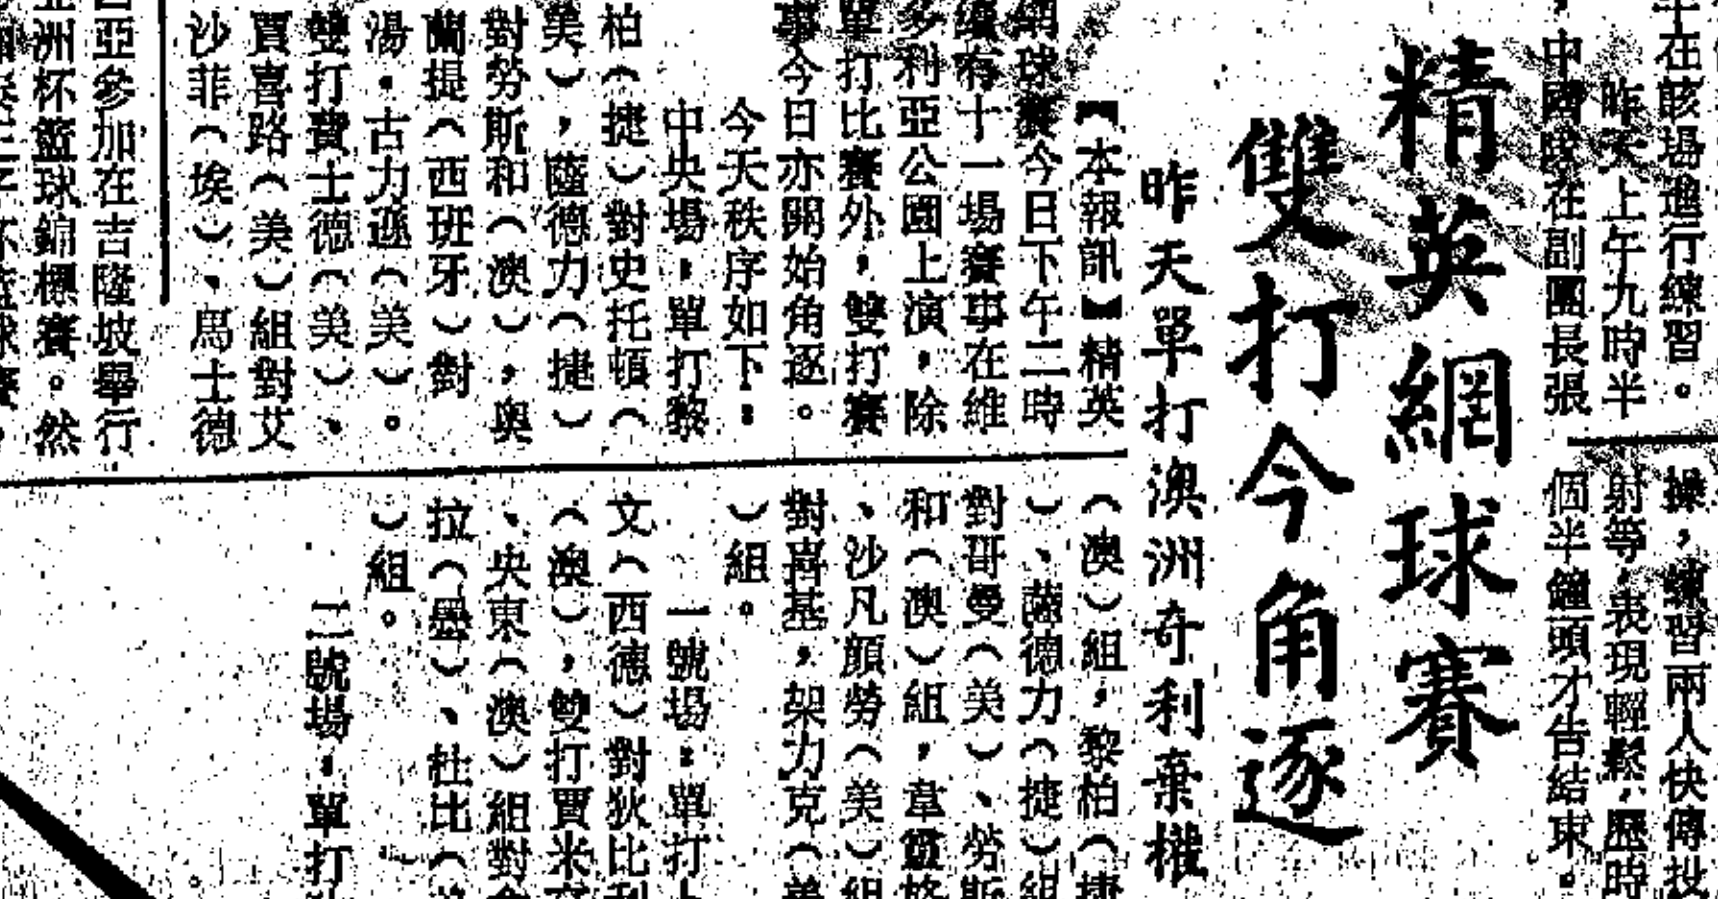 在該場進行練習。
昨天上午九時半
，中國隊在副團長張
操，練習兩人快傳投
射等，表現輕鬆，歷時
個半鐘頭才告結束。
精英網球賽
雙打今角逐
昨天單打澳洲奇利棄權
【本報訊】精英
網球賽今日下午二時
續有十一場賽事在維
多利亞公園上演，除
單打比賽外，雙打賽
事今日亦開始角逐。
今天秩序如下：
中央場：單打黎
柏（捷）對史托頓（
美），薩德力（捷）
對勞斯和（澳），奧
蘭提（西班牙）對
湯・古力遜（美）。
雙打費士德（美）、
賈喜路（美）組對艾
沙菲（埃）、馬士德
（澳）組，黎柏（捷
）、薩德力（捷）組
對哥曼（美）、勞斯
和（澳）組，韋
、沙凡顏勞（美）組
對喜基，架力克（美
）組。
一號場：單打
文（西德）對狄比利
（澳），雙打賈米
、央東（澳）組對
拉（墨）、杜比（
）組。
二號場：單打
亞參加在吉隆坡舉行
亞洲杯籃球錦標賽。然